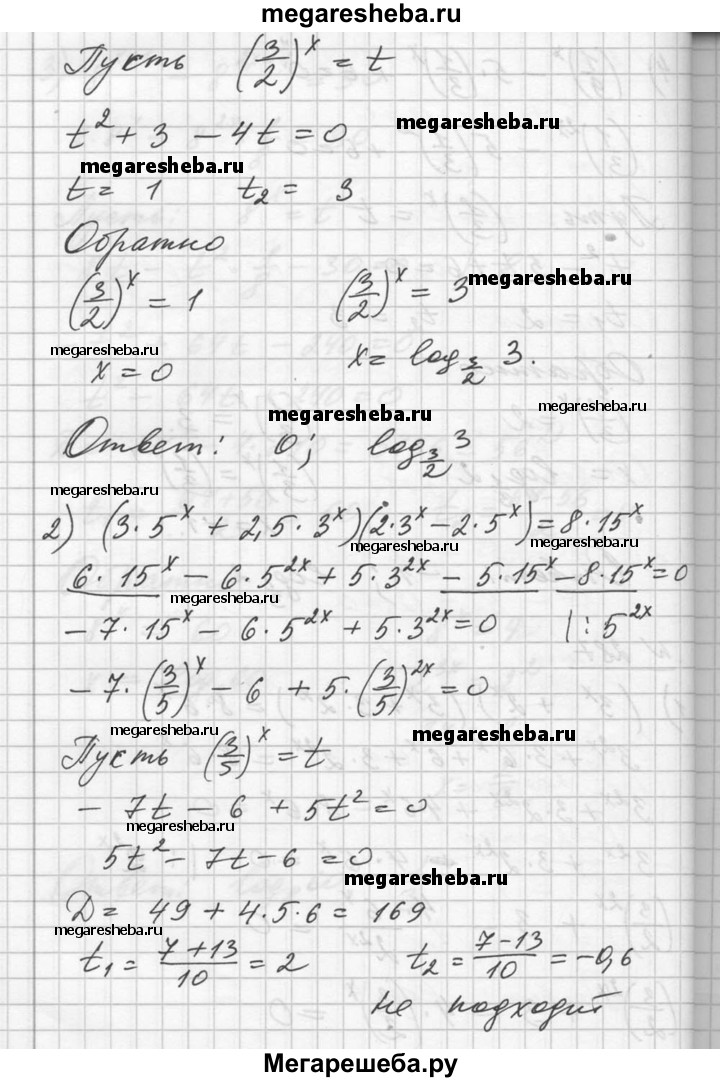 megaresheba.ru
Пусть (3/2)^x = t
t² + 3 - 4t = 0 megaresheba.ru
megaresheba.ru
t = 1 t₂ = 3
Обратно
(3/2)^x = 1 (3/2)^x = 3 megaresheba.ru
megaresheba.ru
x = 0 x = log_{3/2} 3.
megaresheba.ru
megaresheba.ru
Ответ: 0; log_{3/2} 3
megaresheba.ru
2) (3·5^x + 2,5·3^x)(2·3^x - 2·5^x) = 8·15^x
megaresheba.ru
6·15^x - 6·5^{2x} + 5·3^{2x} - 5·15^x - 8·15^x = 0
megaresheba.ru
- 7·15^x - 6·5^{2x} + 5·3^{2x} = 0 |:5^{2x}
- 7·(3/5)^x - 6 + 5·(3/5)^{2x} = 0
megaresheba.ru megaresheba.ru
Пусть (3/5)^x = t
- 7t - 6 + 5t² = 0
megaresheba.ru
5t² - 7t - 6 = 0
megaresheba.ru
D = 49 + 4·5·6 = 169
megaresheba.ru
t₁ = (7+13)/10 = 2 t₂ = (7-13)/10 = -0,6
не подходит
Мегарешеба.ру